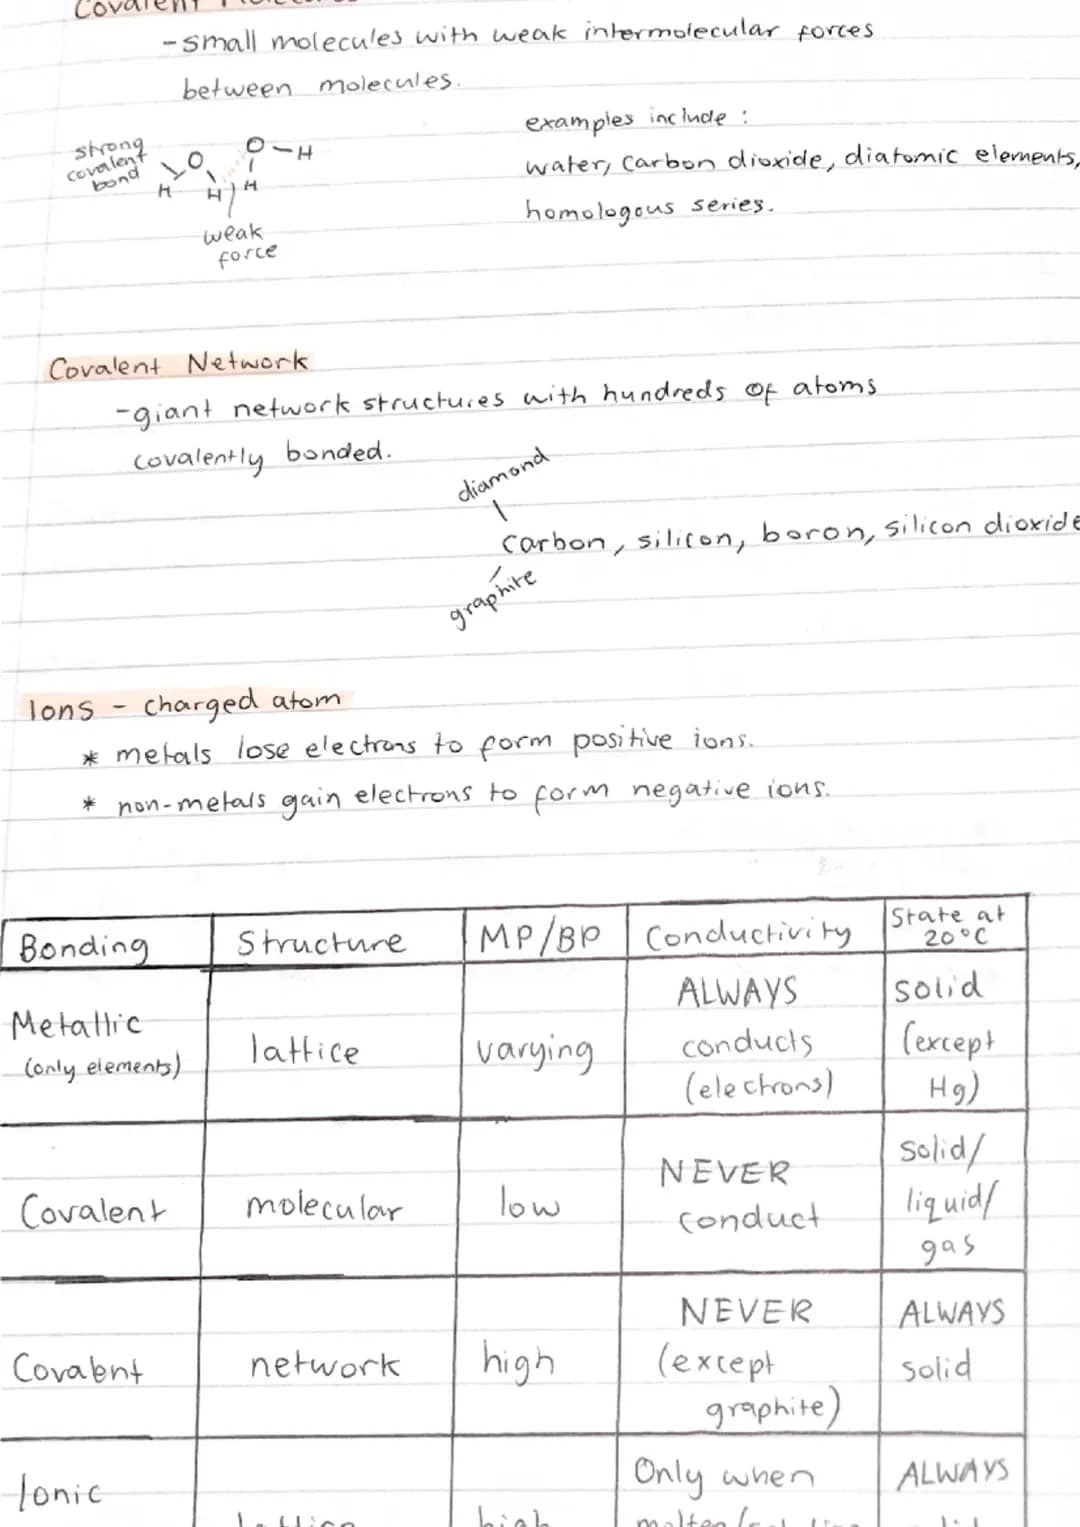 Covalent
-small molecules with weak intermolecular forces
between molecules.
examples include :
water, carbon dioxide, diatomic elements,
homologous series.
strong
covalent
bond
O
O-H
H
H
H
weak
force
Covalent Network
-giant network structures with hundreds of atoms
covalently bonded.
diamond
carbon, silicon, boron, silicon dioxide
graphite
Ions - charged atom
* metals lose electrons to form positive ions.
* non-metals gain electrons to form negative ions.
Bonding Structure MP/BP Conductivity State at
20°C
Metallic
(only elements)
lattice
varying
ALWAYS
conducts
(electrons)
solid
(except
Hg)
Covalent
molecular
low
NEVER
conduct
solid/
liquid/
gas
Covalent
network
high
NEVER
(except
graphite)
ALWAYS
solid
Ionic
lattice
high
Only when
molten
ALWAYS